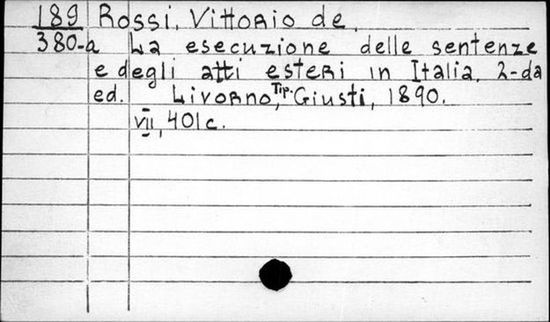 189 Rossi, Vittorio de.
380-a La esecuzione delle sentenze
e degli atti esteri in Italia. 2-da
ed. Livorno, Tip. Giusti, 1890.
VII, 401 c.